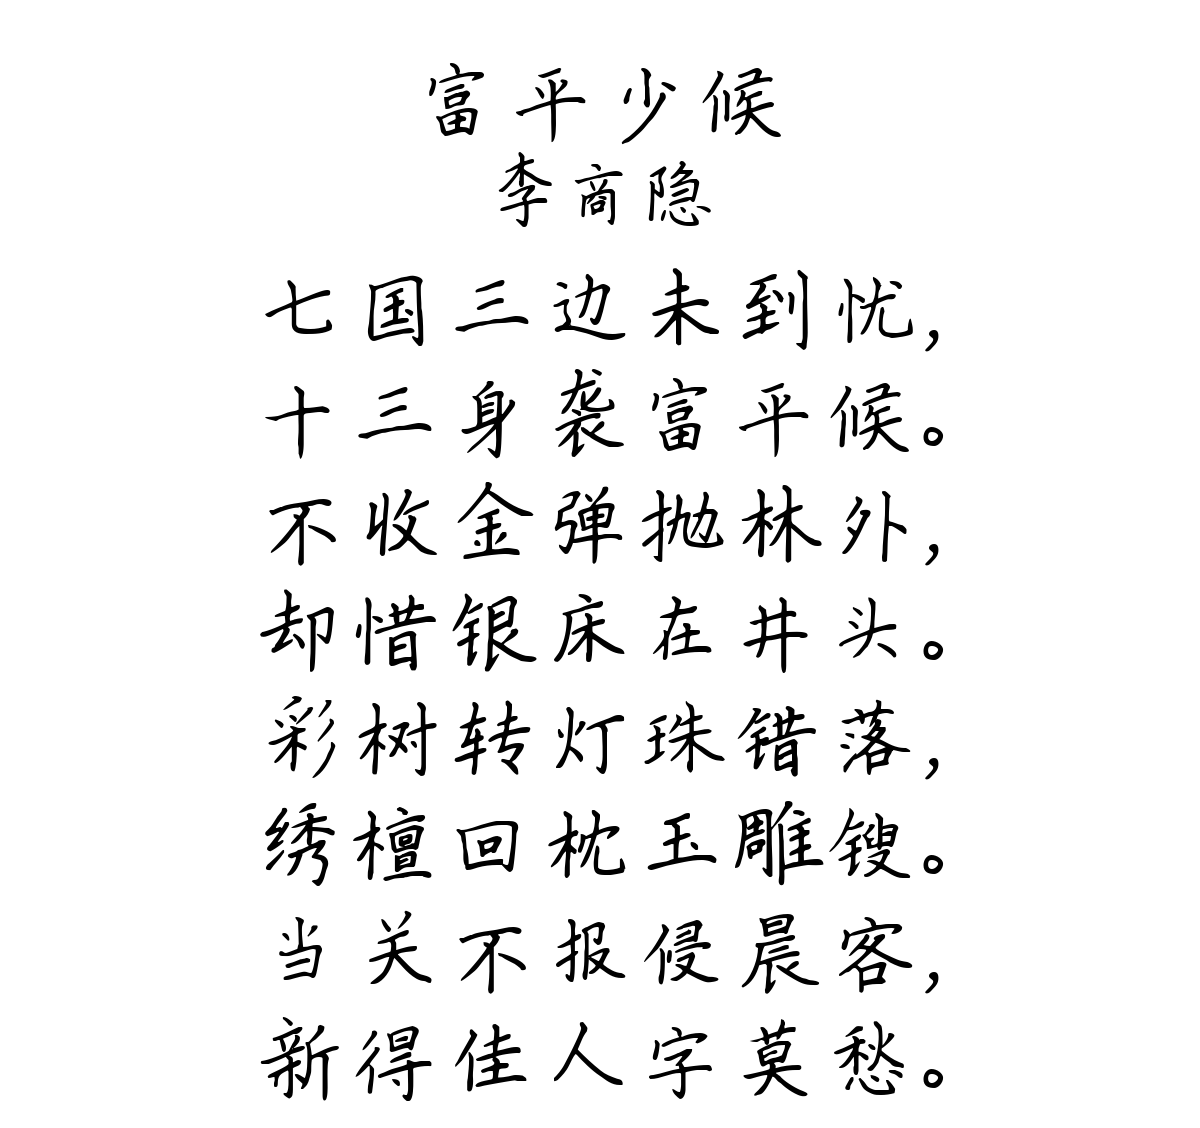 富平少候
李商隐
七国三边未到忧,
十三身袭富平候。
不收金弹抛林外,
却惜银床在井头。
彩树转灯珠错落,
绣檀回枕玉雕锼。
当关不报侵晨客,
新得佳人字莫愁。